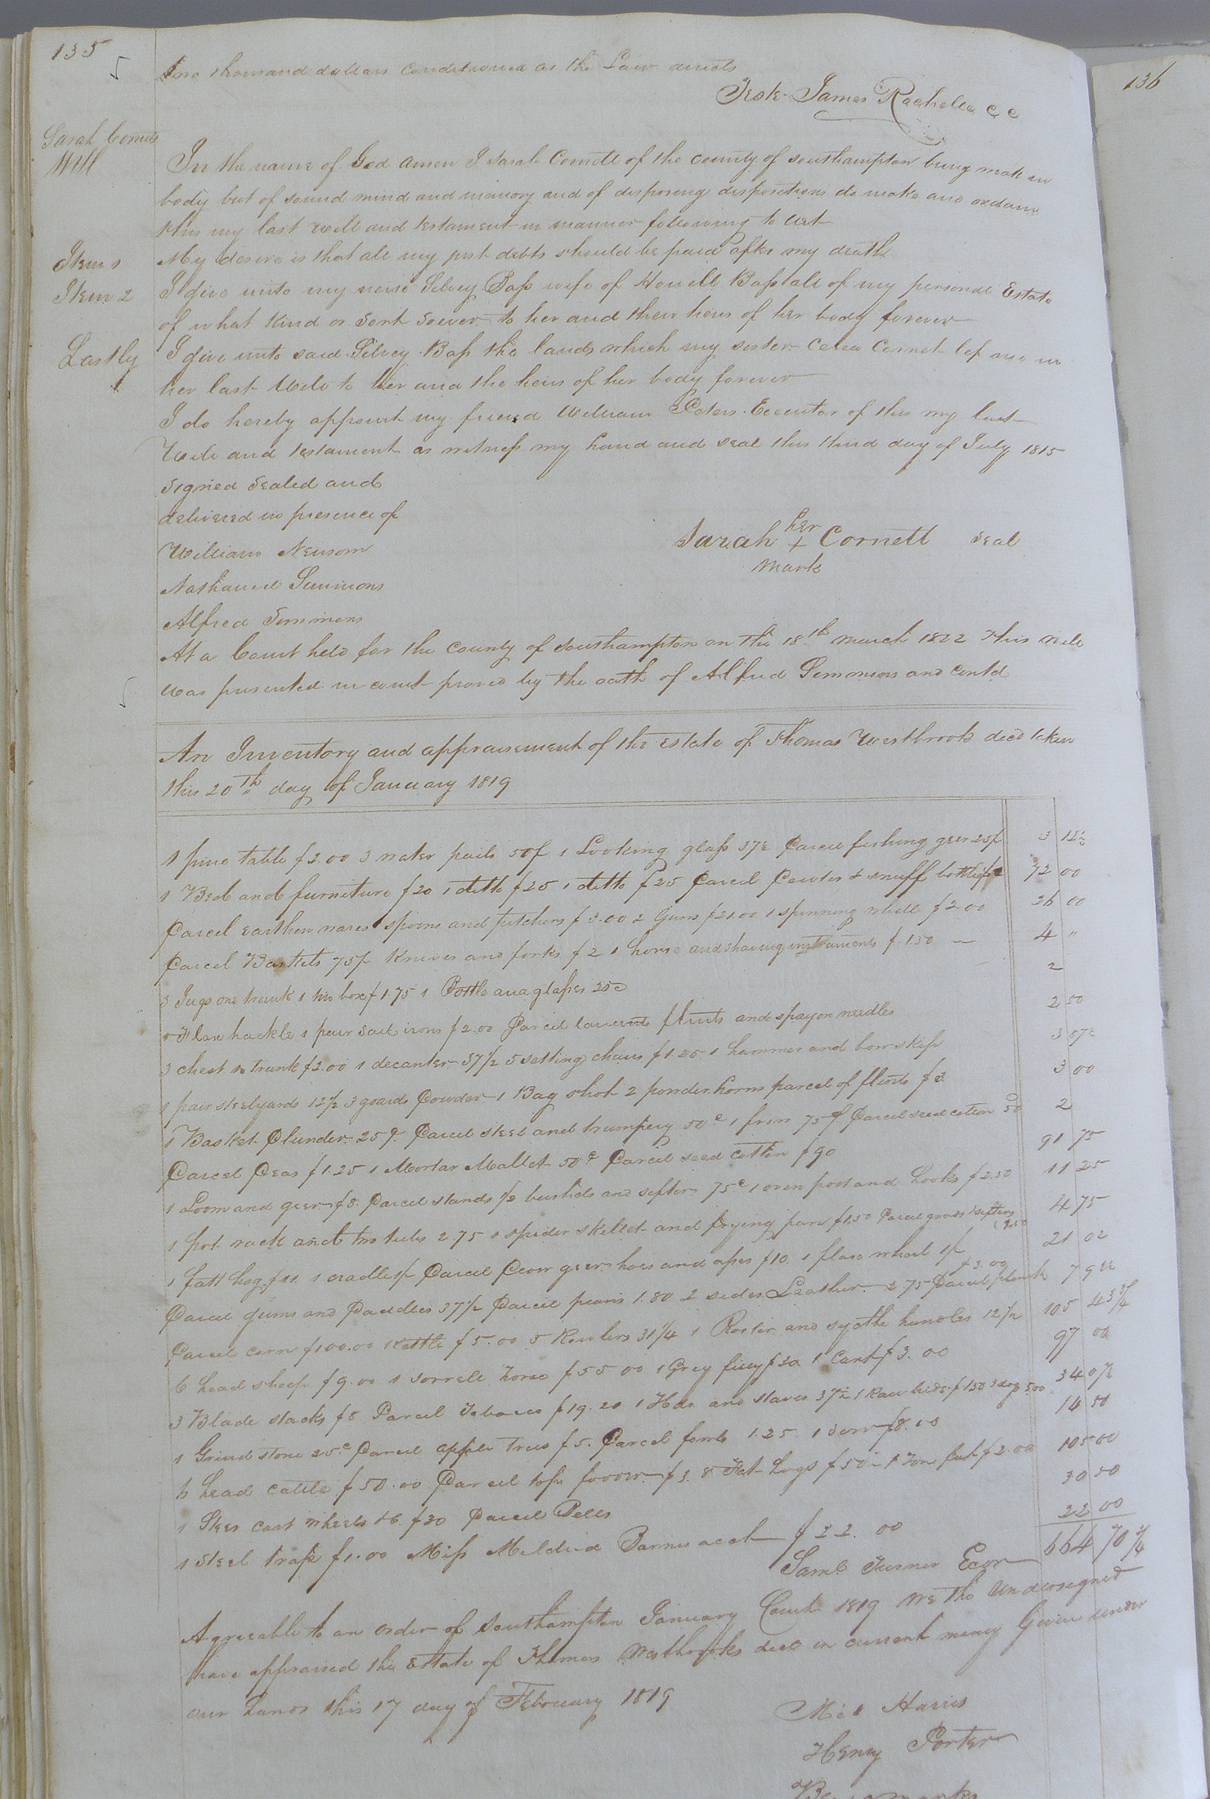 135
136
two thousand dollars conditioned as the Law directs
Teste James Rochelle C C
Sarah Cornett
Will
In the name of God amen I Sarah Cornett of the county of Southampton being weak in
body but of sound mind and memory and of disposing disposition do make and ordain
this my last will and testament in manner following to wit
Item 1 My desire is that all my just debts should be paid after my death
Item 2 I give unto my neice Silvey Bass wife of Howell Bass all of my personal Estate
of what kind or sort soever to her and their heirs of her body forever
Lastly I give unto said Silvey Bass the lands which my sister Celia Cornet left me in
her last Will to her and the heirs of her body forever
I do hereby appoint my friend William Peters Executor of this my last
Will and testament as witness my hand and seal this third day of July 1815
Signed Sealed and
delivered in presence of
William Newsom
Sarah her + Cornett seal
mark
Nathaniel Simmons
Alfred Simmons
At a Court held for the County of Southampton on the 18th march 1822 This will
was presented in court proved by the oath of Alfred Simmons and contd
An Inventory and appraisement of the estate of Thomas Westbrook decd taken
this 20th day of January 1819
1 pine table $2.00 3 water pails 50¢ 1 Looking glass 37½ Parcel fishing geer 25¢ 3 12½
1 Bed and furniture $20 1 ditto $25 1 ditto $25 Parcel Pewter & snuff bottle $2 72 00
Parcel earthen ware spoons and pitchers $3.00 2 Guns $21.00 1 spinning wheel $2.00 26 00
Parcel Baskets 75¢ Knives and forks $2 1 horse and shaving instruments $1.50 4 "
3 Jugs one trunk 1 tin box $1.75 1 Bottle and glasses 25c 2
1 Flax hackle 1 pair sad irons $2.00 Parcel flints and needles 2 50
3 chest 1 trunk $2.00 1 decanter 37½ 5 setting chairs $1.25 1 hammer and 3 87½
1 pair steelyards 12½ 3 gourds Powder 1 Bag shot 2 powder horns parcel of flints $3 3 00
1 Basket Plunder 25¢ Parcel steel and trumpery 50c 1 75¢ Parcel seed cotton 50 2
Parcel Peas $1.25 1 Mortar Mallet 50¢ Parcel seed cotton $90 91 75
1 Loom and geer $8 Parcel stands ½ bushels and sifter 75c 1 oven pot and hooks $2.50 11 25
1 pot rack and two tubs 2 75 1 spider skillet and frying pan $1.50 Parcel gourds 1 sifting 4 75
1 fatt hog $11 1 cradle Parcel Plow geer hoes and axes $10 1 flax wheel 21 02
Parcel gums and Paddles 37½ Parcel 1.80 2 sides Leather 2 75 Parcel plank $3.00 7 92½
Parcel corn $100.00 1 Kettle $5.00 5 31¼ 1 and sythe handles 12½ 105 43¾
6 head sheep $9.00 1 sorrell horse $55 00 1 Grey filley $30 1 Cart $3.00 97 00
3 Blade stacks $8 Parcel Tobacco $19.20 1 Hhd and staves 37½ 1 Raw hide $1.50 5.00 34 07½
1 Grind stone 25c Parcel apple trees $5 Parcel fowls 1.25 1 sow $8.00 14 50
6 head cattle $50.00 Parcel tops fodder $3 8 Fat hogs $50 $2.00 105 00
1 Steer cart wheels &c $30 Parcel Peas 30 50
1 steel trap $1.00 Miss Mildred Barnes acct $22.00 22 00
664 70¼
Saml Turner Exor
Agreeable to an order of Southampton January Court 1819 we the undersigned
have appraised the estate of Thomas Westbrooks decd in current money Given under
our hands this 17 day of February 1819
Harris
Henry Porter